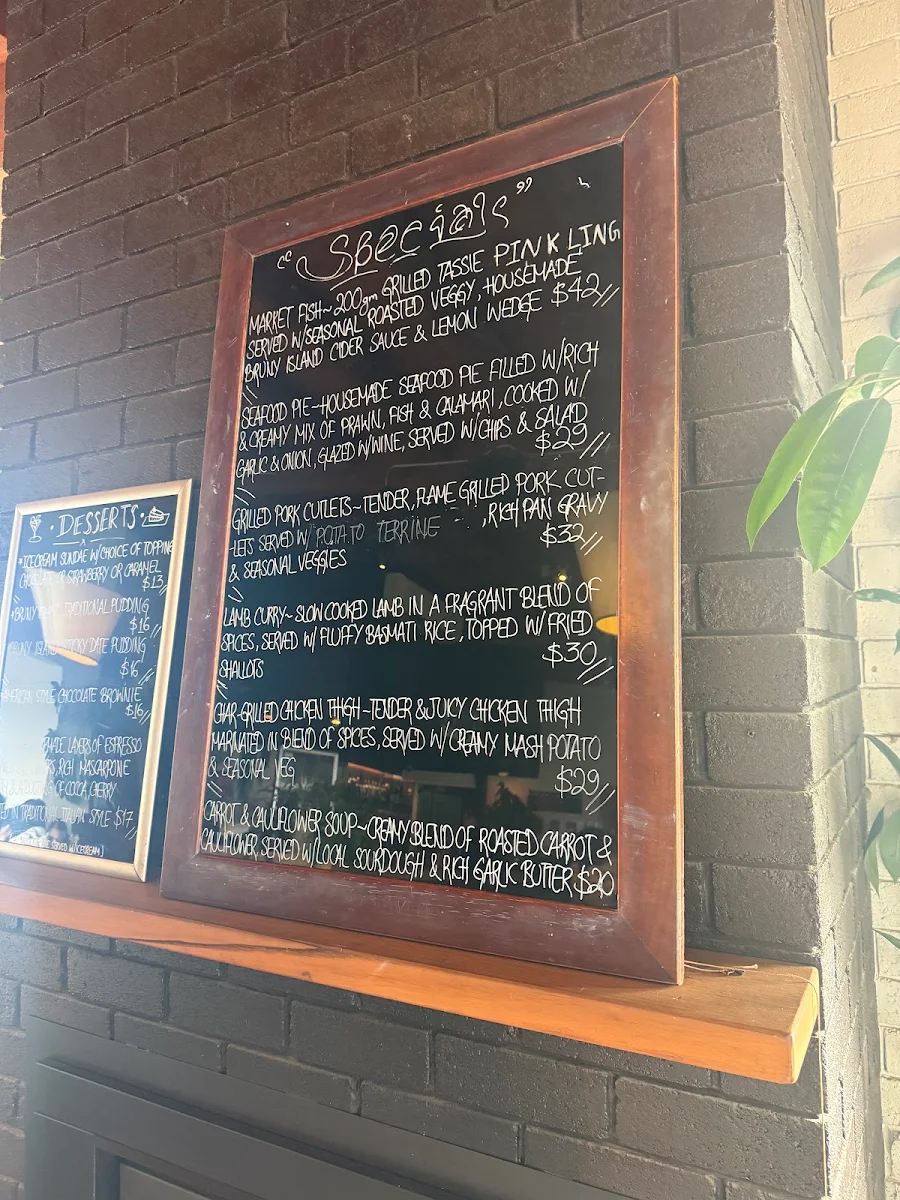 "Specials"
MARKET FISH~ 200gm GRILLED TASSIE PINK LING
SERVED W/SEASONAL ROASTED VEGGY, HOUSEMADE
BRUNY ISLAND CIDER SAUCE & LEMON WEDGE $42//
SEAFOOD PIE~HOUSEMADE SEAFOOD PIE FILLED W/RICH
& CREAMY MIX OF PRAWN, FISH & CALAMARI, COOKED W/
GARLIC & ONION, GLAZED W/WINE, SERVED W/CHIPS & SALAD
$29//
GRILLED PORK CUTLETS~TENDER, FLAME GRILLED PORK CUT-
-LETS SERVED W/ POTATO TERRINE , RICH PAN GRAVY
& SEASONAL VEGGIES $32//
LAMB CURRY~SLOW COOKED LAMB IN A FRAGRANT BLEND OF
SPICES, SERVED W/ FLUFFY BASMATI RICE, TOPPED W/ FRIED
SHALLOTS $30//
CHAR-GRILLED CHICKEN THIGH~TENDER & JUICY CHICKEN THIGH
MARINATED IN BLEND OF SPICES, SERVED W/CREAMY MASH POTATO
& SEASONAL VEG $29//
CARROT & CAULIFLOWER SOUP~CREAMY BLEND OF ROASTED CARROT &
CAULIFLOWER, SERVED W/LOCAL SOURDOUGH & RICH GARLIC BUTTER $20
DESSERTS
ICECREAM SUNDAE W/CHOICE OF TOPPING
CHOCOLATE OR STRAWBERRY OR CARAMEL
$13
BRUNY TRADITIONAL PUDDING
$16//
DATE PUDDING
$16//
AMERICAN STYLE CHOCOLATE BROWNIE
$16//
LAYERS OF ESPRESSO
RICH MASCARPONE
OF COCOA, CHERRY
IN TRADITIONAL ITALIAN STYLE $17//
SERVED W/ICECREAM)